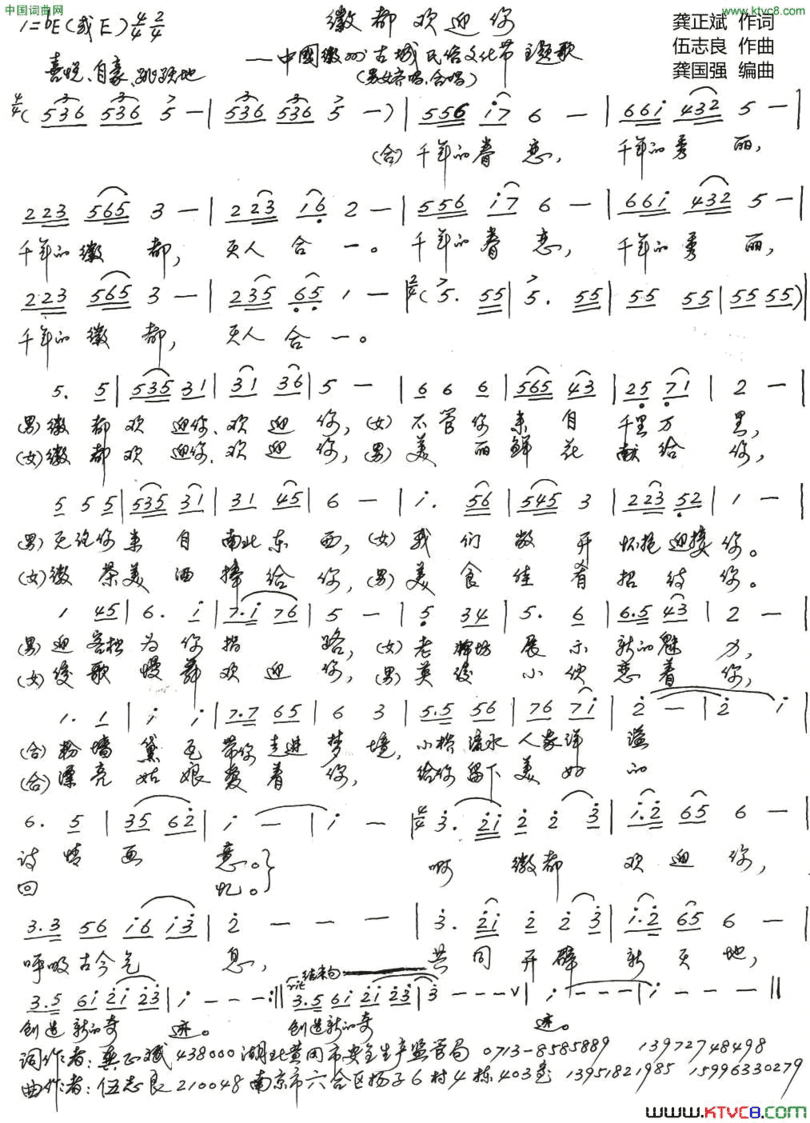 中国词曲网
www.ktvc8.com
徽都欢迎你
1=bE(或E) 4/4 2/4
龚正斌 作词
——中國徽州古城民俗文化节主题歌
伍志良 作曲
(男女齐唱、合唱)
喜悦、自豪、跳跃地
龚国强 编曲
4/4 (536 536 5 — | 536 536 5 —) | 556 i7 6 — | 66i 432 5 — |
(合)千年的眷恋, 千年的秀丽,
223 565 3 — | 223 i6 2 — | 556 i7 6 — | 66i 432 5 — |
千年的徽都, 天人合一。千年的眷恋, 千年的秀丽,
223 565 3 — | 235 65 1 — | 2/4 (5. 55 | 5. 55 | 55 55 | 55 55) |
千年的徽都, 天人合一。
5. 5 | 535 31 | 31 36 | 5 — | 6 6 6 | 565 43 | 25 71 | 2 — |
(男)徽都欢迎你、欢迎你, (女)不管你来自千里万里,
(女)徽都欢迎你、欢迎你, (男)美丽鲜花献给你,
5 5 5 | 535 31 | 31 45 | 6 — | i. 56 | 545 3 | 223 52 | 1 — |
(男)无论你来自南北东西, (女)我们敞开怀抱迎接你。
(女)徽茶美酒捧给你, (男)美食佳肴招待你。
1 45 | 6. i | 7.i 76 | 5 — | 5 34 | 5. 6 | 6.5 43 | 2 — |
(男)迎客松为你指路, (女)老牌坊展示新的魅力,
(女)缓歌慢舞欢迎你, (男)英俊小伙恋着你,
1. 1 | i i | 7.7 65 | 6 3 | 5.5 56 | 76 7i | 2 — | 2 i |
(合)粉墙黛瓦带你走进梦境, 小桥流水人家洋溢
(合)漂亮姑娘爱着你, 给你留下美好的
6. 5 | 35 62 | i — | i — | 4/4 3. 2i 2 2 3 | i.2 65 6 — |
诗情画意。 啊 徽都欢迎你,
回忆。
3.3 56 i6 i3 | 2 — — — | 3. 2i 2 2 3 | i.2 65 6 — |
呼吸古今气息, 共同开辟新天地,
rit 结束句
3.5 6i 2i 23 | i — — — :‖ 3.5 6i 2i 23 | 3 — — — v | i — — — | i — — — ‖
创造新的奇迹。 创造新的奇迹。
词作者: 龚正斌 438000 湖北黄冈市安全生产监管局 0713-8585889 13972748498
曲作者: 伍志良 210048 南京市六合区扬子6村4栋403室 13951821985 15996330279
www.KTVC8.com